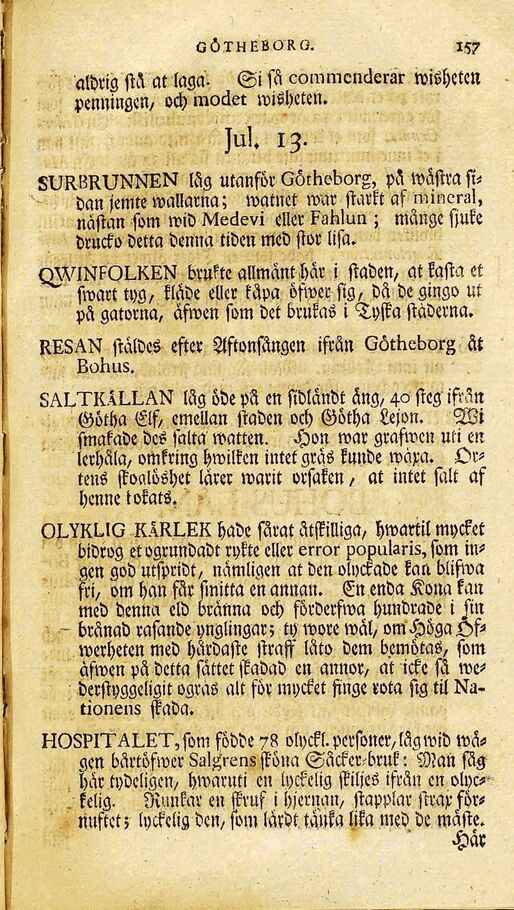 GÖTHEBORG. 157
aldrig stå at laga. Si så commenderar wisheten
penningen, och modet wisheten.
Jul. 13.
SURBRUNNEN låg utanför Götheborg, på wästra si-
dan jemte wallarna; watnet war starkt af mineral,
nästan som wid Medevi eller Fahlun; månge sjuke
drucko detta denna tiden med stor lisa.
QWINFOLKEN brukte allmänt här i staden, at kasta et
swart tyg, kläde eller kåpa öfwer sig, då de gingo ut
på gatorna, äfwen som det brukas i Tyska städerna.
RESAN stäldes efter Aftonsången ifrån Götheborg åt
Bohus.
SALTKÄLLAN låg öde på en sidländt äng, 40 steg ifrån
Götha Elf, emellan staden och Götha Lejon. Wi
smakade des salta watten. Hon war grafwen uti en
lerhåla, omkring hwilken intet gräs kunde wäxa. Or-
tens skoglöshet lärer warit orsaken, at intet salt af
henne tokats.
OLYKLIG KÄRLEK hade sårat åtskilliga, hwartil mycket
bidrog et ogrundadt rykte eller error popularis, som in-
gen god utspridt, nämligen at den olyckade kan blifwa
fri, om han får smitta en annan. En enda Kona kan
med denna eld bränna och förderfwa hundrade i sin
brånad rasande ynglingar; ty wore wäl, om Höga Öf-
werheten med hårdaste straff låto dem bemötas, som
äfwen på detta sättet skadad en annor, at icke så we-
derstyggeligit ogräs alt för mycket finge rota sig til Na-
tionens skada.
HOSPITALET, som födde 78 olyckl. personer, låg wid wä-
gen bärtöfwer Salgrens sköna Säcker-bruk: Man såg
här tydeligen, hwaruti en lyckelig skiljes ifrån en olyc-
kelig. Runkar en skruf i hjernan, stapplar strax för-
nuftet; lyckelig den, som lärdt tänka lika med de mäste.
Här